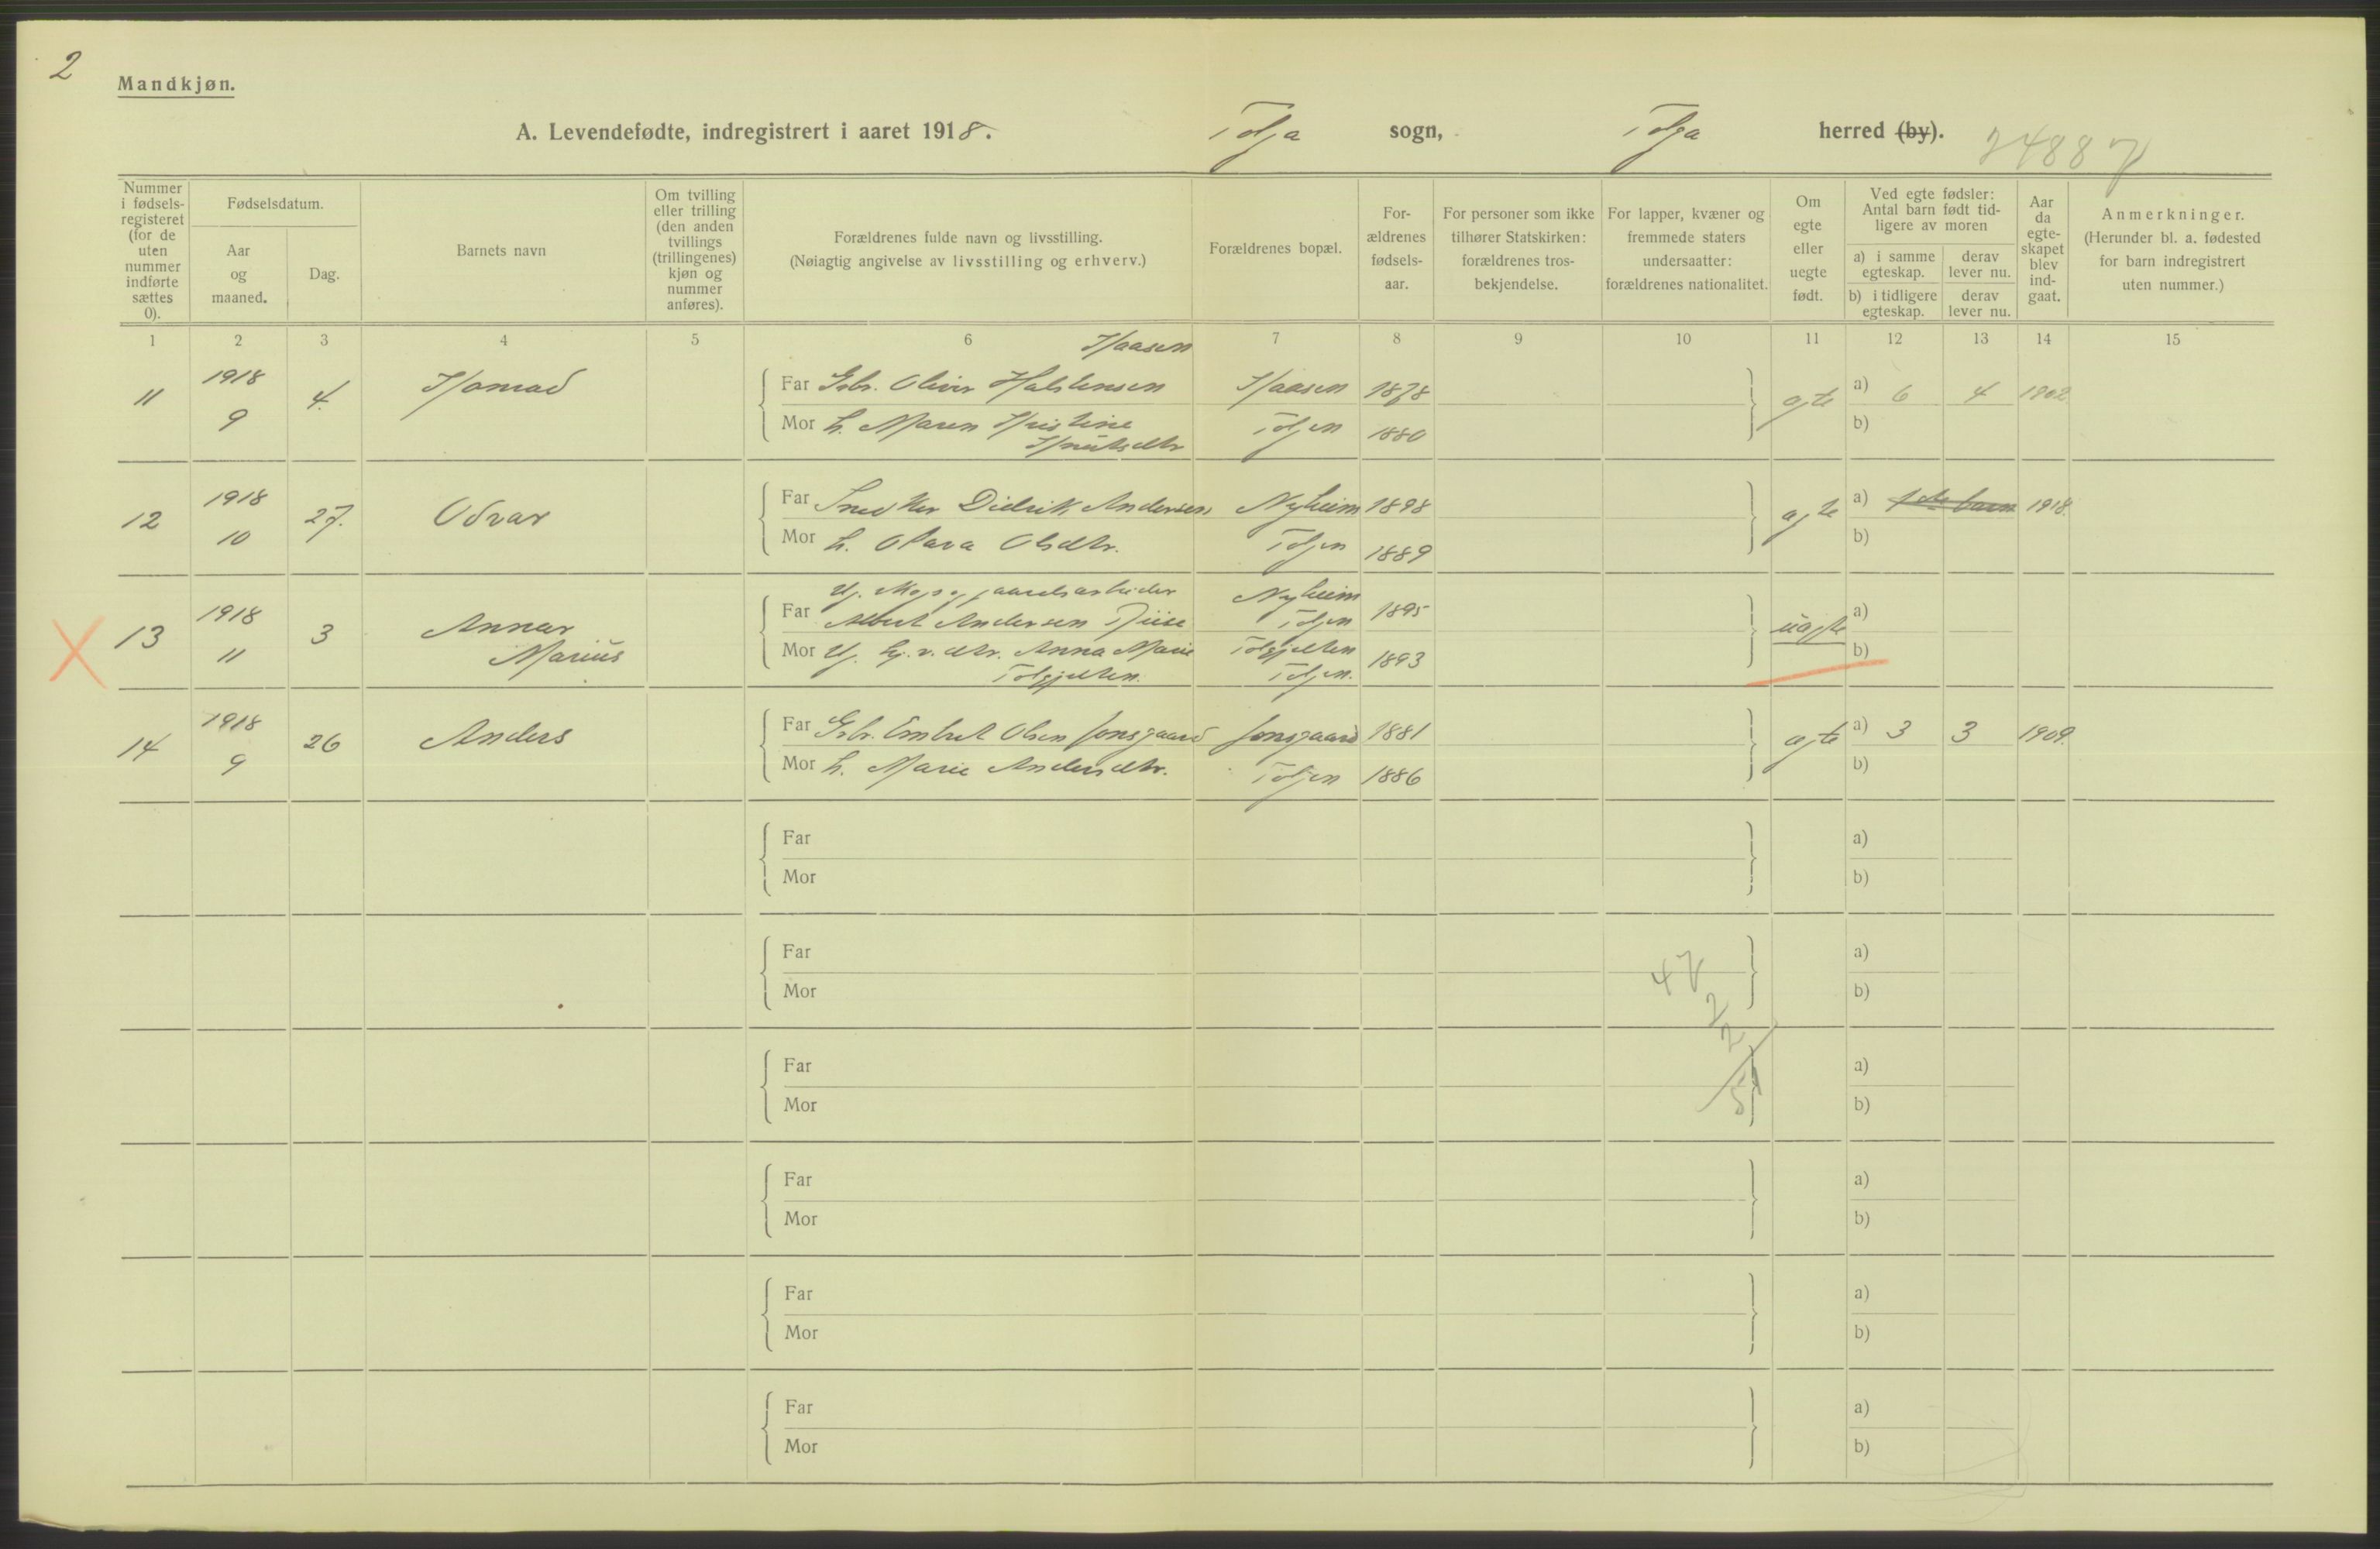 2
Mandkjøn.
A. Levendefødte, indregistrert i aaret 1918. Tolga sogn, Tolga herred (by). 24887
Nummer i fødsels-registeret (for de uten nummer indførte sættes 0).
Fødselsdatum.
Aar og maaned.
Dag.
Barnets navn
Om tvilling eller trilling (den anden tvillings (trillingenes) kjøn og nummer anføres).
Forældrenes fulde navn og livsstilling.
(Nøiagtig angivelse av livsstilling og erhverv.)
Forældrenes bopæl.
For-ældrenes fødsels-aar.
For personer som ikke tilhører Statskirken: forældrenes tros-bekjendelse.
For lapper, kvæner og fremmede staters undersaatter: forældrenes nationalitet.
Om egte eller uegte født.
Ved egte fødsler: Antal barn født tid-ligere av moren
a) i samme egteskap.
derav lever nu.
b) i tidligere egteskap.
derav lever nu.
Aar da egte-skapet blev ind-gaat.
Anmerkninger.
(Herunder bl. a. fødested for barn indregistrert uten nummer.)
1 2 3 4 5 6 7 8 9 10 11 12 13 14 15
Haasen
11 1918 9 4. Konrad Far Gbr. Oliver Halstensen Haasen 1878 egte a) 6 4 1902
Mor h. Maren Kristine Tolgen 1880 b)
Knutsdtr
12 1918 10 27. Odvar Far Snedker Didrik Andersen Nyheim 1898 egte a) 1ste barn 1918.
Mor h. Olava Olsdtr. Tolgen 1889 b)
13 1918 11 3 Annar Marius
Far Albert Andersen Nyheim Tolgen 1895 uegte a)
Mor Anna Marie Tolgen. 1893 b)
14 1918 9 26 Anders Far Gbr. Embret Olsen Jonsgaard Jonsgaard 1881 egte a) 3 3 1909.
Mor h. Marie Andersdtr. Tolgen 1886 b)
Far a)
Mor b)
Far a)
47
Mor b)
2
2
Far a)
Mor 51 b)
Far a)
Mor b)
Far a)
Mor b)
Far a)
Mor b)